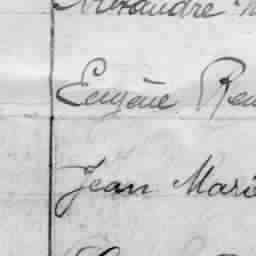 Alexandre
Eugène Ren
Jean Marie